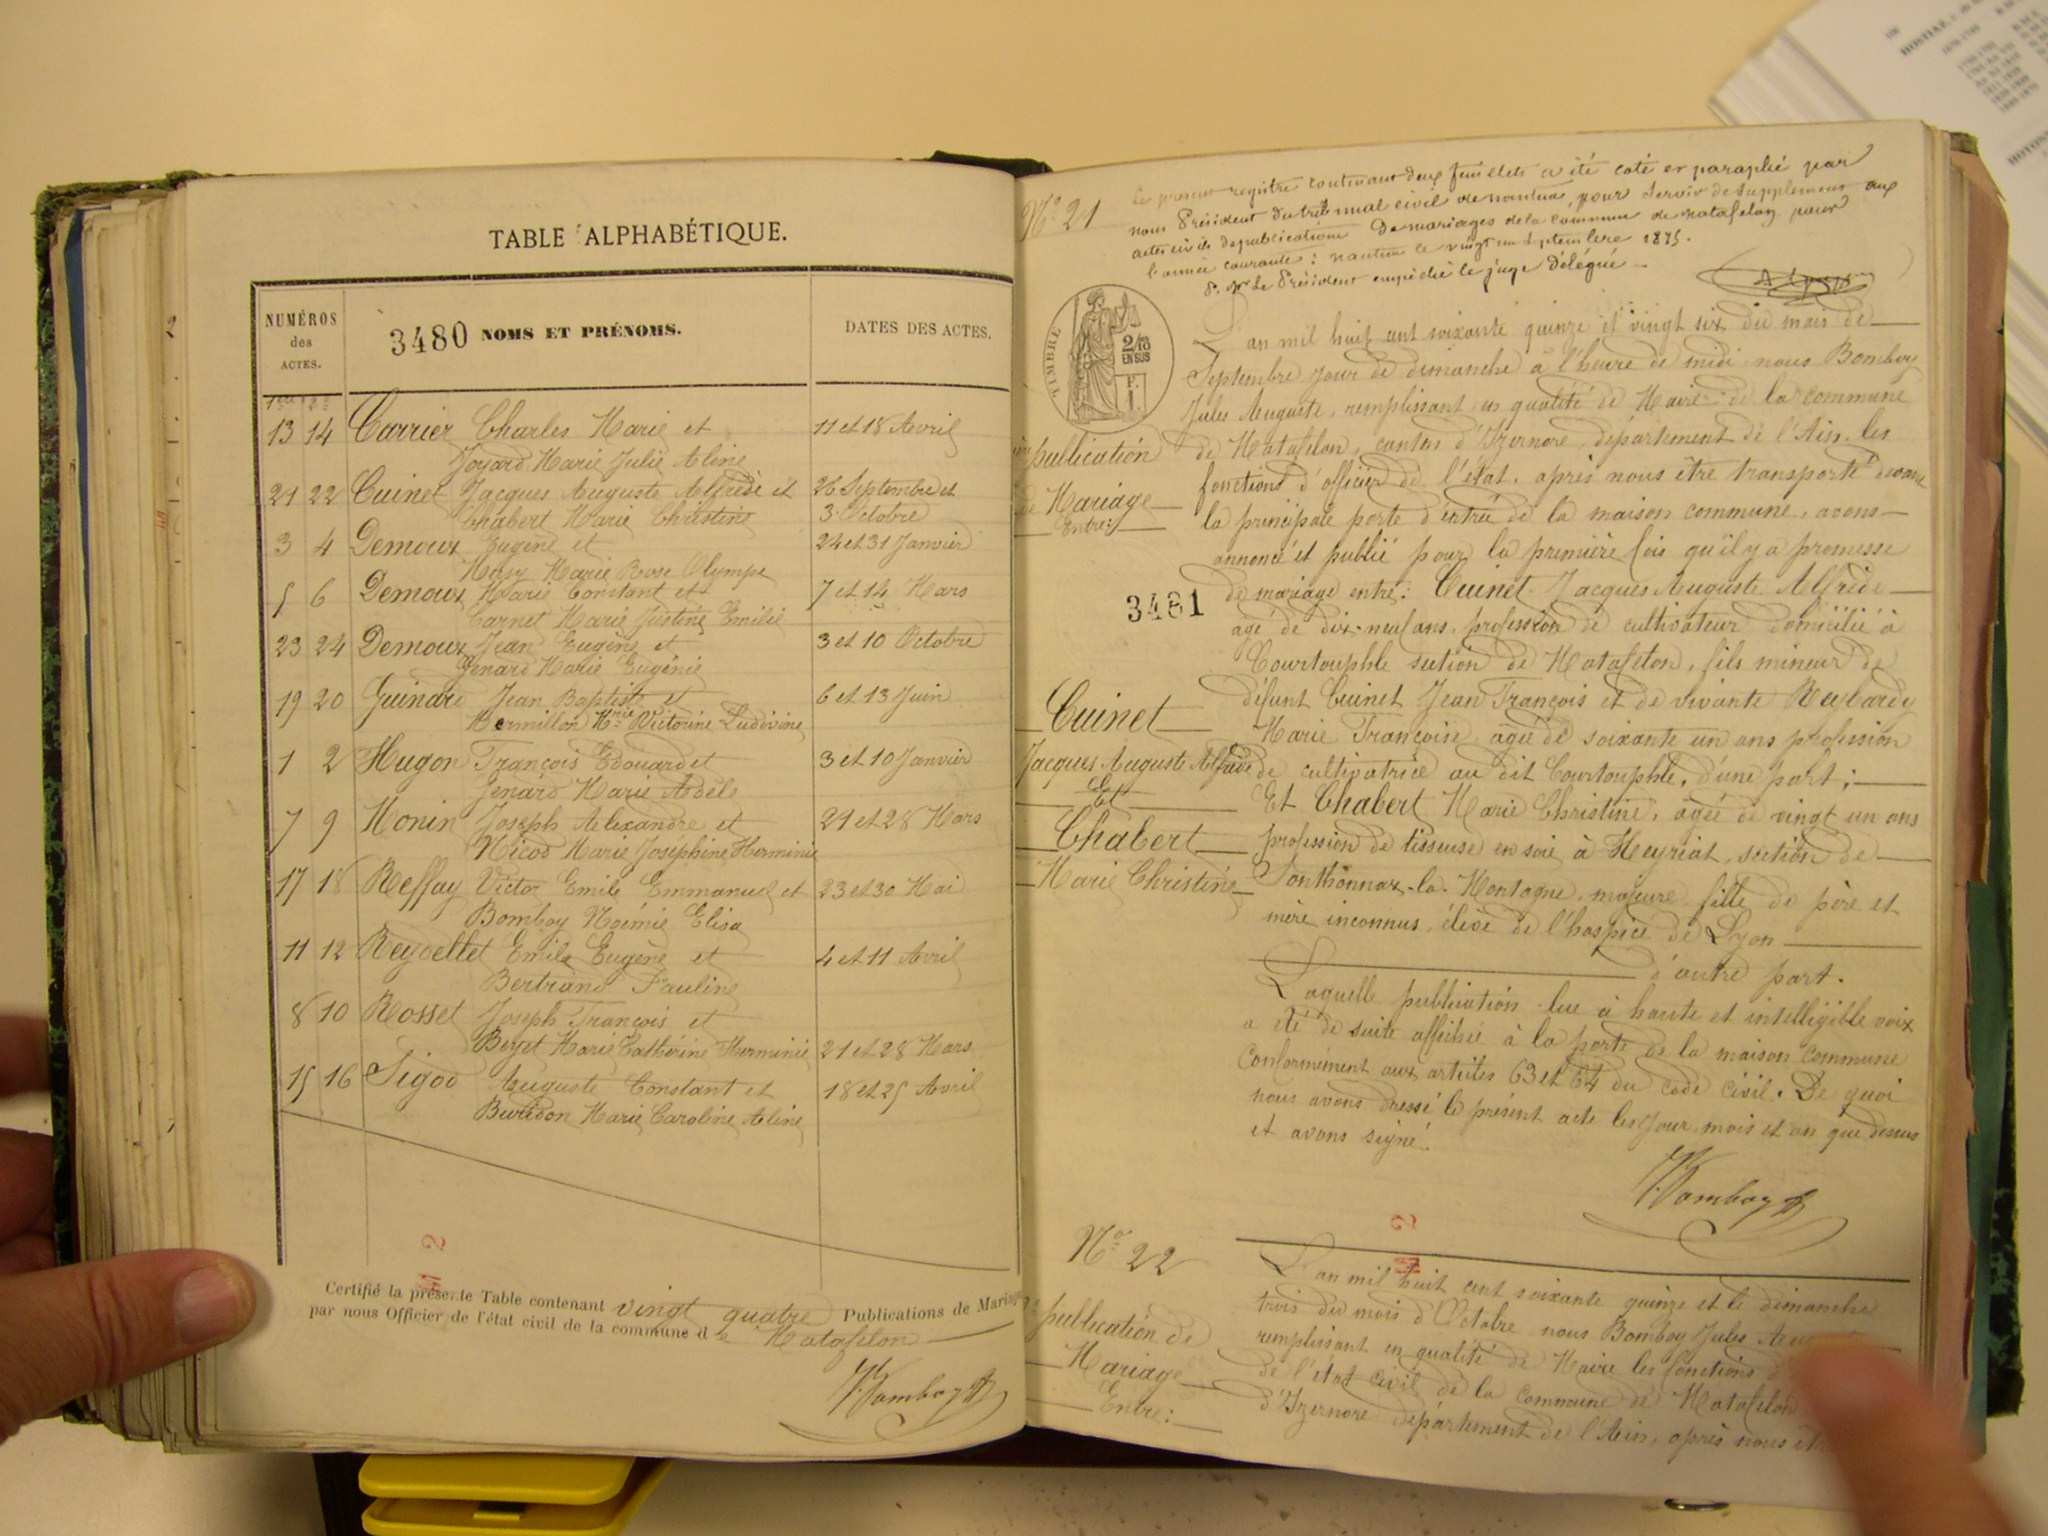 TABLE ALPHABÉTIQUE.
NUMÉROS
des
ACTES.
3480 NOMS ET PRÉNOMS.
DATES DES ACTES.
13 14 Carrier Charles Marie et 11 et 18 Avril
Joyard Marie Julie Aline
21 22 Cuinet Jacques Auguste Alfrède et 26 Septembre et
Chabert Marie Christine 3 Octobre
3 4 Demoux Eugène et 24 et 31 Janvier
Marie Rose Olympe
5 6 Demoux Marie Constant et 7 et 14 Mars
Carnet Marie Justine Emilie
23 24 Demoux Jean Eugène et 3 et 10 Octobre
Jenard Marie Eugénie
19 20 Guinard Jean Baptiste et 6 et 13 Juin
Bermillon Mie Victorine Ludivine
1 2 Hugon François Edouard et 3 et 10 Janvier
Jenard Marie Adèle
7 9 Monin Joseph Alexandre et 21 et 28 Mars
Nicod Marie Joséphine Herminie
17 18 Reffay Victor Emile Emmanuel et 23 et 30 Mai
Bomboy Noémie Elisa
11 12 Reydellet Emile Eugène et 4 et 11 Avril
Bertrand Pauline
8 10 Rosset Joseph François et
Beyet Marie Catherine Herminie 21 et 28 Mars
15 16 Sigod Auguste Constant et 18 et 25 Avril
Buridon Marie Caroline Aline
Certifié la présente Table contenant vingt quatre Publications de Mariage
par nous Officier de l'état civil de la commune de Matafelon
Bomboy
Nº 21
Le présent registre contenant deux feuillets a été coté et paraphé par
nous Président du tribunal civil de nantua, pour servir de supplément aux
actes civils de publications de mariages de la commune de matafelon pour
l'année courante : nantua le vingt un septembre 1875.
Pr Mr Le Président empêché le juge délégué
TIMBRE
2/10
EN SUS
F.
1.
L'an mil huit cent soixante quinze et vingt six du mois de
Septembre jour de dimanche à l'heure de midi nous Bomboy
Jules Auguste, remplissant en qualité de Maire de la commune
publication
de Matafelon, canton d'Izernore, département de l'Ain les
de Mariage
Entre:
fonctions d'officier de l'état, après nous être transporté devant
la principale porte d'entrée de la maison commune, avons
annoncé et publié pour la première fois qu'il y a promesse
3481
de mariage entre: Cuinet Jacques Auguste Alfrède
agé de dix-neuf ans, profession de cultivateur domicilié à
Courtouphle section de Matafelon, fils mineur de
Cuinet
défunt Cuinet Jean François et de vivante Reybardy
Marie Françoise agée de soixante un ans profession
Jacques Auguste Alfrède
de cultivatrice au dit Courtouphle, d'une part;
Et
Et Chabert Marie Christine, agée de vingt un ans
Chabert
profession de tisseuse en soie à Heyriat, section de
Marie Christine
Sonthonnax-la-Montagne, majeure fille de père et
mère inconnus, élève de l'hospice de Lyon
d'autre part.
Laquelle publication lue à haute et intelligible voix
a été de suite affichée à la porte de la maison commune
Conformément aux articles 63 et 64 du code civil. De quoi
nous avons dressé le présent acte les jour mois et an que dessus
et avons signé.
Bomboy
Nº 22
L'an mil huit cent soixante quinze et le dimanche
trois du mois d'Octobre nous Bomboy Jules
publication de
remplissant en qualité de Maire les fonctions
Mariage
de l'état civil de la commune de Matafelon
Entre:
d'Izernore département de l'Ain, après nous